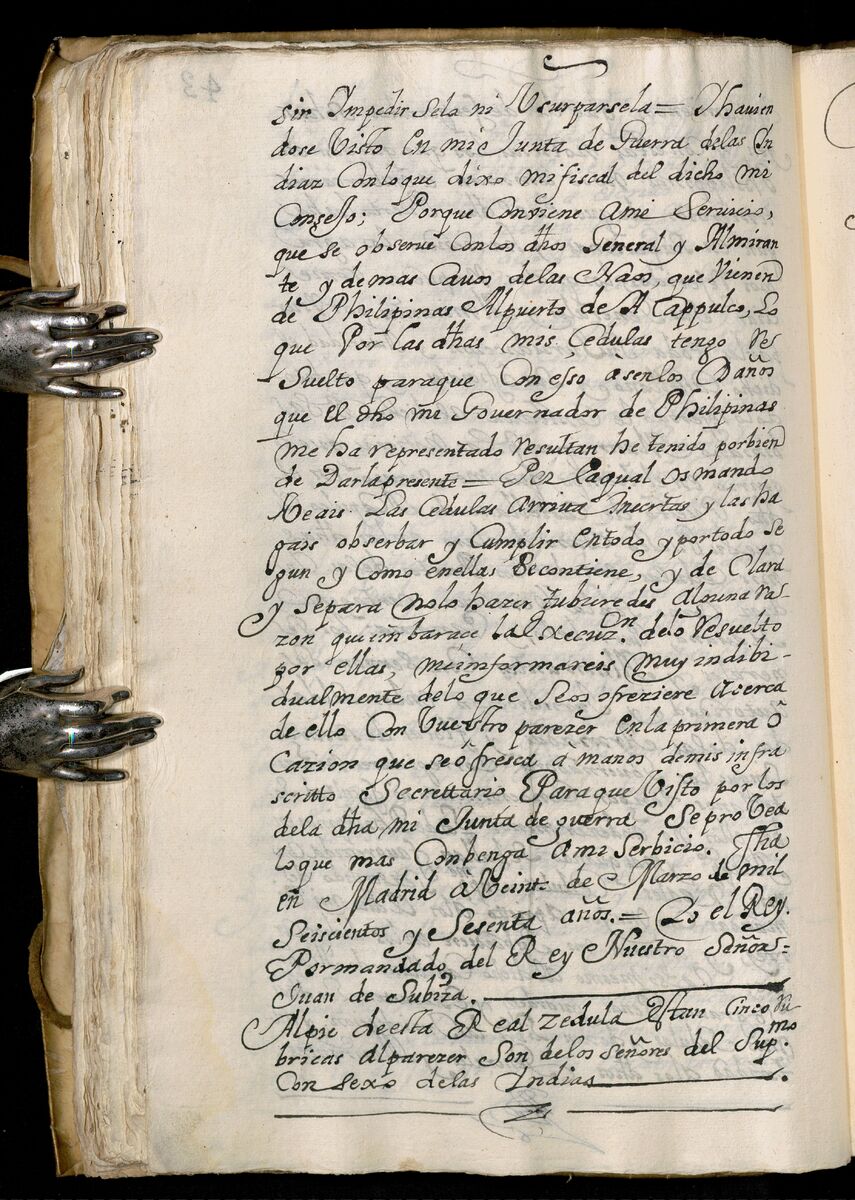 43
sir Impedirsela ni Usurparsela = Y havien
dose Visto en mi Junta de Guerra delas Yn
diaz Conloque dixo mi fiscal del dicho mi
Consejo; Porque Conviene Ami Servicio,
que se observe Conlos dhos General y Almiran
te y demas Cavos delas Naos, que Vienen
de Philipinas Alpuerto de ACappulco, Lo
que Por las dhas mis Cedulas tengo Re
Suelto paraque Con esso àsenlos Daños
que El dho mi Governador de Philipinas
me ha representado Resultan he tenido porbien
de Darlapresente = Por Laqual Os mando
Veais Las Cedulas arriva Insertas y las ha
gais obserbar y Cumplir Entodo y portodo Se
gun y Como enellas Secontiene, y de Clara
y Separa Nolo hazer tubieredes Alguna Ra-
zon que imbaraçe la Execuz.n delo Resuelto
por ellas, meinformareis Muy indibi-
dualmente delo que Seos ofreziere Acerca
de ello Con Vuestro parezer Enla primera ô
Cazion que seôfresca à manos demis infra
scritto Secrettario Paraque Visto por los
dela dha mi Junta de guerra Se proVea
loque mas Conbenga Ami Serbicio. fha
en Madrid à Veint.e de Marzo de mil
Seiscientos y Sesenta años. = Yo el Rey.
Pormandado del Rey Nuestro Señor =
Juan de Subiza.
Alpie deesta Real Zedula Estan Cinco Ru
bricas Alparezer Son delos Señores del Sup.mo
Consexo delas Yndias.